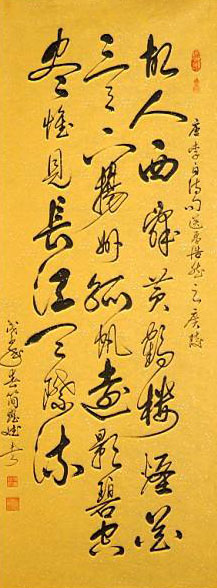 唐李白詩句送孟浩然之廣陵
故人西辭黃鶴樓煙花
三月下揚州孤帆遠影碧空
盡惟見長江天際流